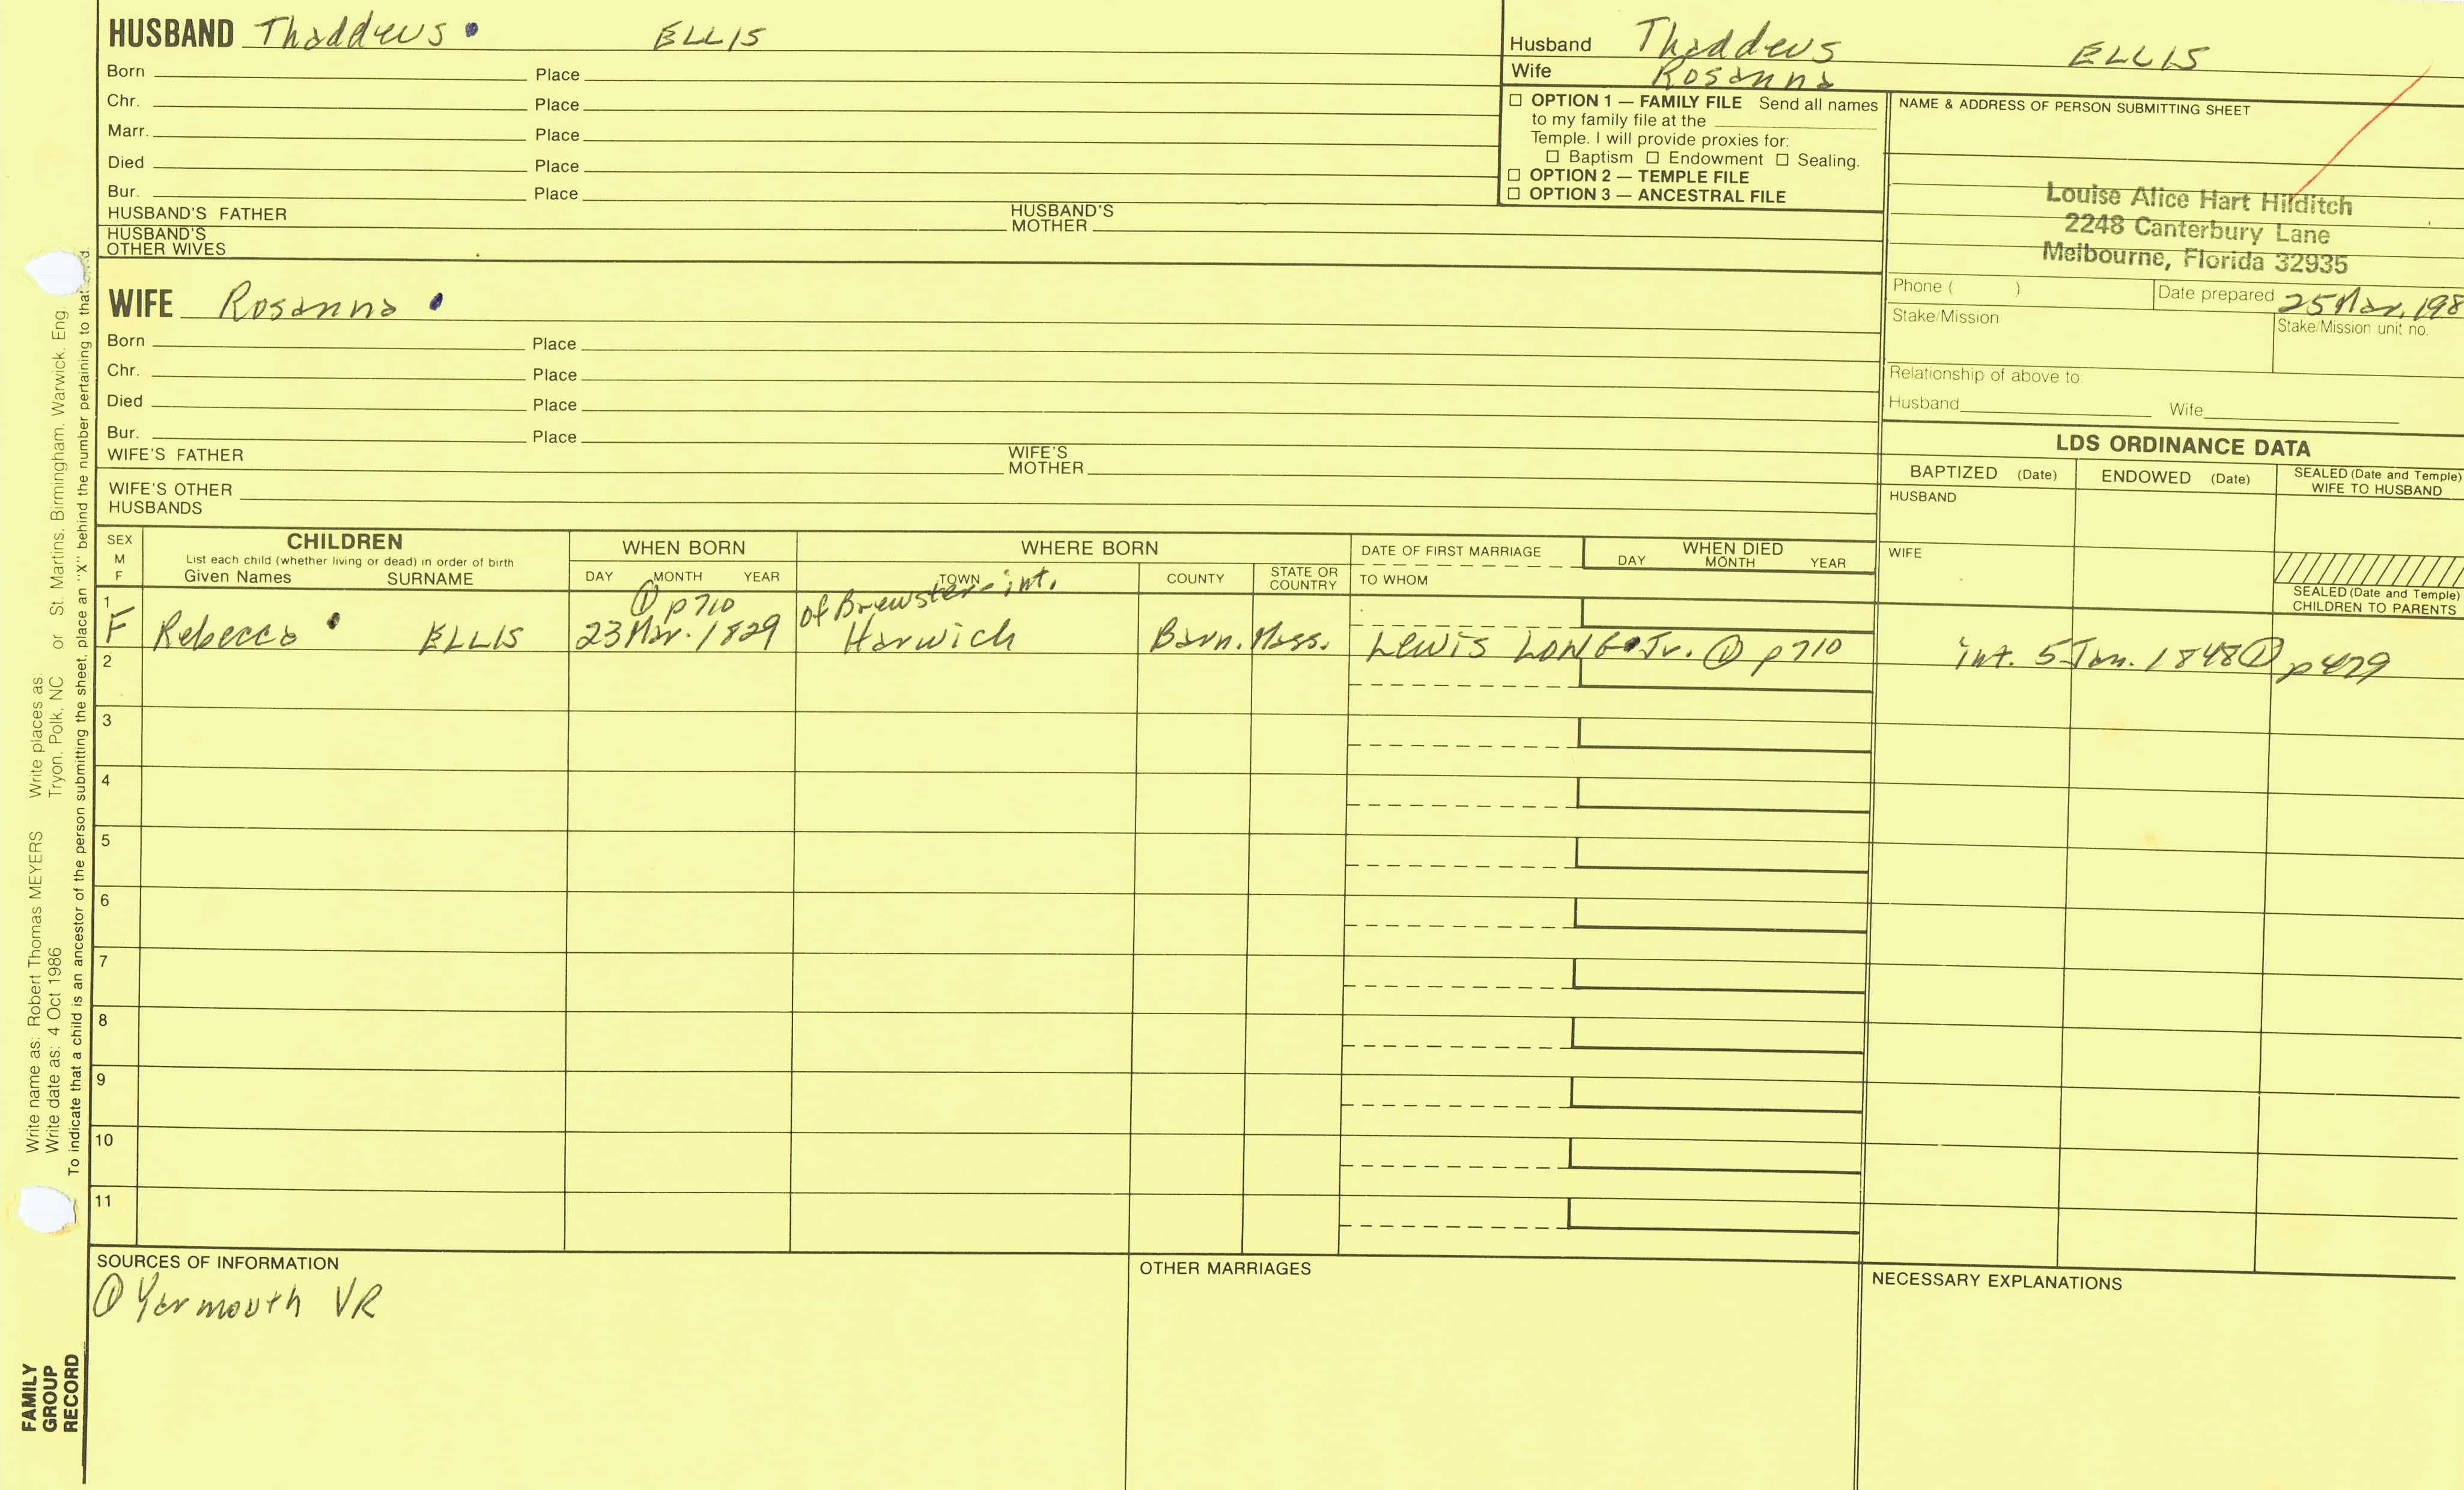 HUSBAND Thaddeus ELLIS
Born Place
Chr. Place
Marr. Place
Died Place
Bur. Place
HUSBAND'S FATHER HUSBAND'S MOTHER
HUSBAND'S OTHER WIVES
WIFE Rosanna
Born Place
Chr. Place
Died Place
Bur. Place
WIFE'S FATHER WIFE'S MOTHER
WIFE'S OTHER HUSBANDS
Husband Thaddeus ELLIS
Wife Rosanna
☐ OPTION 1 — FAMILY FILE Send all names
to my family file at the
Temple. I will provide proxies for:
☐ Baptism ☐ Endowment ☐ Sealing.
☐ OPTION 2 — TEMPLE FILE
☐ OPTION 3 — ANCESTRAL FILE
NAME & ADDRESS OF PERSON SUBMITTING SHEET
Louise Alice Hart Hilditch
2248 Canterbury Lane
Melbourne, Florida 32935
Phone ( ) Date prepared 25 Mar. 198
Stake/Mission Stake/Mission unit no.
Relationship of above to:
Husband Wife
LDS ORDINANCE DATA
BAPTIZED (Date) ENDOWED (Date) SEALED (Date and Temple)
WIFE TO HUSBAND
HUSBAND
WIFE
SEALED (Date and Temple)
CHILDREN TO PARENTS
SEX M F
CHILDREN
List each child (whether living or dead) in order of birth
Given Names SURNAME
WHEN BORN
DAY MONTH YEAR
WHERE BORN
TOWN COUNTY STATE OR COUNTRY
DATE OF FIRST MARRIAGE
TO WHOM
WHEN DIED
DAY MONTH YEAR
① p710 of Brewster-int.
1 F Rebecca ELLIS 23 Mar. 1829 Harwich Barn. Mass. Lewis LONG Jr. ① p710 int. 5 Jan. 1848 ① p479
2
3
4
5
6
7
8
9
10
11
SOURCES OF INFORMATION
① Yarmouth VR
OTHER MARRIAGES
NECESSARY EXPLANATIONS
Write name as: Robert Thomas MEYERS Write places as: Tryon, Polk, NC or St. Martins, Birmingham, Warwick, Eng
Write date as: 4 Oct 1986
To indicate that a child is an ancestor of the person submitting the sheet, place an "X" behind the number pertaining to that
FAMILY
GROUP
RECORD